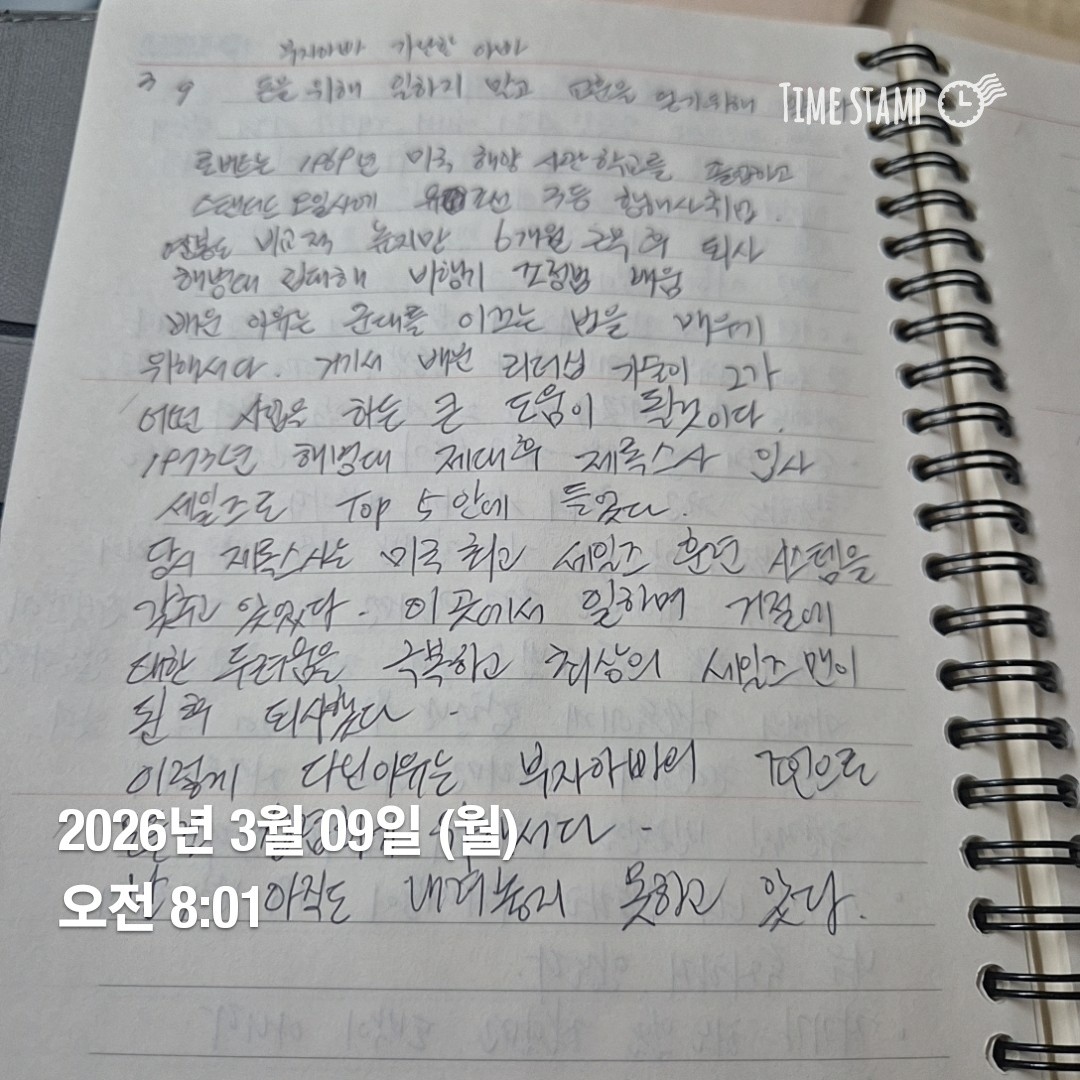 부자아빠 가난한 아빠
TIMESTAMP
3 9 돈을 위해 일하지 말고 배움을 얻기위해
로버트는 1969년 미국 해양 사관학교를 졸업하고
스탠더드 오일사에 유조선 3등 항해사 취업.
연봉도 비교적 높지만 6개월 근무 후 퇴사
해병대 입대해 비행기 조정법 배움
배운 이유는 군대를 이끄는 법을 배우기
위해서다. 거기서 배운 리더십 기술이 그가
어떤 사업을 하든 큰 도움이 될것이다.
1973년 해병대 제대후 제록스사 입사
세일즈로 Top 5안에 들었다.
당시 제록스사는 미국 최고 세일즈 훈련 시스템을
갖추고 있었다. 이 곳에서 일하며 거절에
대한 두려움을 극복하고 최상의 세일즈맨이
된 후 퇴사했다.
이렇게 다닌이유는 부자아빠의 조언으로
서다.
난 아직도 내려놓지 못하고 있다.
2026년 3월 09일 (월)
오전 8:01